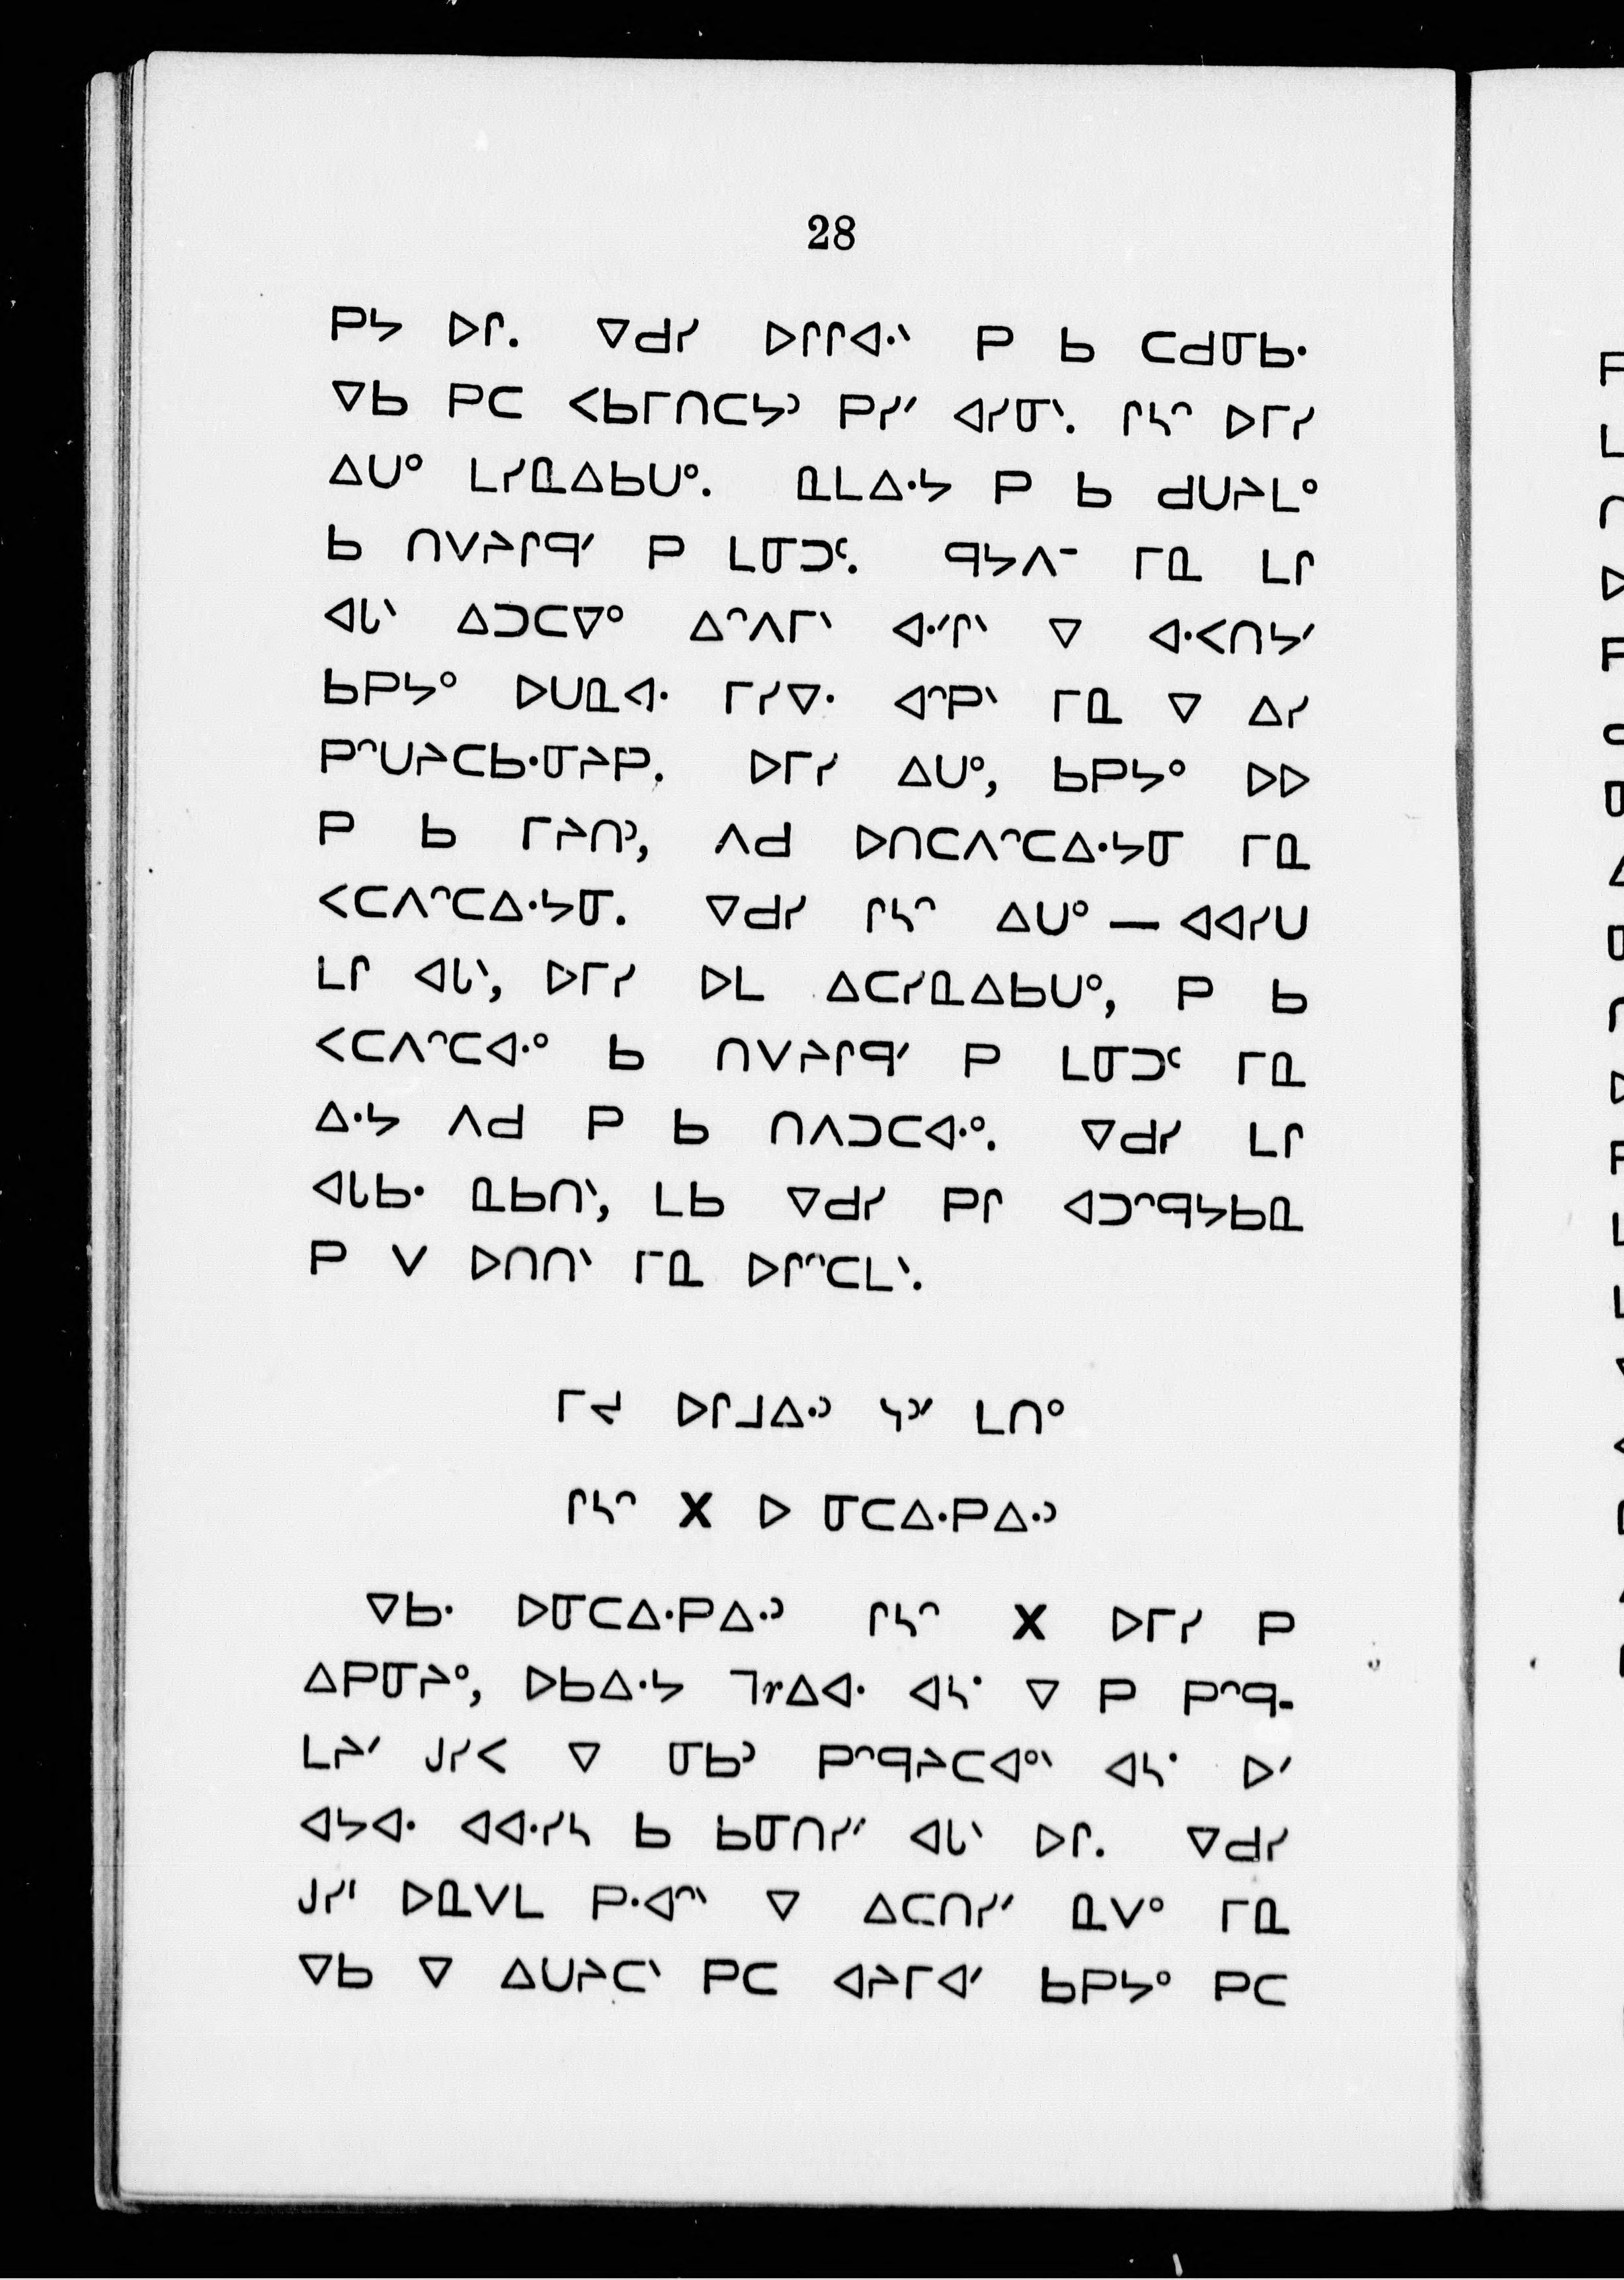 28
ᑭᔭ ᐅᒋ. ᐁᑯᓯ ᐅᒋᒋᐘᐠ ᑭ ᑲ ᑕᑯᓇᑿ
ᐁᑲ ᑭᑕ ᐸᑲᒥᑎᑕᔭᐣ ᑭᓯᐟ ᐊᓯᓂᐠ. ᒋᓴᐢ ᐅᒥᓯ
ᐃᑌᐤ ᒪᓯᓇᐃᑲᑌᐤ. ᓇᒪᐏᔭ ᑭ ᑲ ᑯᑌᔨᒪᐤ
ᑲ ᑎᐯᔨᒋᑫᐟ ᑭ ᒪᓂᑐᑦ. ᑫᔭᐱᐨ ᒥᓇ ᒪᒋ
ᐊᒐᐠ ᐃᑐᑕᐁᐤ ᐃᐢᐱᒥᐠ ᐘᐟᒋᐠ ᐁ ᐘᐸᑎᔭᐟ
ᑲᑭᔭᐤ ᐅᑌᓇᐘ ᒥᓯᐍ ᐊᐢᑭᐠ ᒥᓇ ᐁ ᐃᓯ
ᑭᐢᑌᔨᑕᑿᓂᔨᑭ. ᐅᒥᓯ ᐃᑌᐤ, ᑲᑭᔭᐤ ᐅᐅ
ᑭ ᑲ ᒥᔨᑎᐣ, ᐱᑯ ᐅᑎᑕᐱᐢᑕᐏᔭᓂ ᒥᓇ
ᐸᑕᐱᐢᑕᐏᔭᓂ. ᐁᑯᓯ ᒋᓴᐢ ᐃᑌᐤ — ᐊᐊᓯᑌ
ᒪᒋ ᐊᒐᐠ, ᐅᒥᓯ ᐅᒪ ᐃᑕᓯᓇᐃᑲᑌᐤ, ᑭ ᑲ
ᐸᑕᐱᐢᑕᐘᐤ ᑲ ᑎᐯᔨᒋᑫᐟ ᑭ ᒪᓂᑐᑦ ᒥᓇ
ᐏᔭ ᐱᑯ ᑭ ᑲ ᑎᐱᑐᑕᐘᐤ. ᐁᑯᓯ ᒪᒋ
ᐊᒐᑿ ᓇᑲᑎᐠ, ᒪᑲ ᐁᑯᓯ ᑭᒋ ᐊᑐᐢᑫᔭᑲᓇ
ᑭ ᐯ ᐅᑎᑎᐠ ᒥᓇ ᐅᒋᐢᑕᒪᐠ.
ᒥᔪ ᐅᒋᒧᐏᐣ ᓭᐣᐟ ᒪᑎᐤ
ᒋᓴᐢ X ᐅ ᓂᑕᐏᑭᐏᐣ
ᐁᑿ ᐅᓂᑕᐏᑭᐏᐣ ᒋᓴᐢ X ᐅᒥᓯ ᑭ
ᐃᑭᓂᔨᐤ, ᐅᑲᐏᔭ ᒣᕒᐃᐘ ᐊᓴᐩ ᐁ ᑭ ᑭᐢᑫ-
ᒪᔨᐟ ᒍᓯᐸ ᐁ ᓂᑲᐣ ᑭᐢᑫᔨᑕᐊᐤᐠ ᐊᓴᐩ ᐅᐟ
ᐊᔭᐘ ᐊᐘᓯᓴ ᑲ ᑲᓂᑎᓯᐟ ᐊᒐᐠ ᐅᒋ. ᐁᑯᓯ
ᒍᓯᑊ ᐅᓇᐯᒪ ᑷᐊᐢᐠ ᐁ ᐃᑕᑎᓯᐟ ᓇᐯᐤ ᒥᓇ
ᐁᑲ ᐁ ᐃᑌᔨᑕᐠ ᑭᑕ ᐊᔨᒥᐊᐟ ᑲᑭᔭᐤ ᑭᑕ